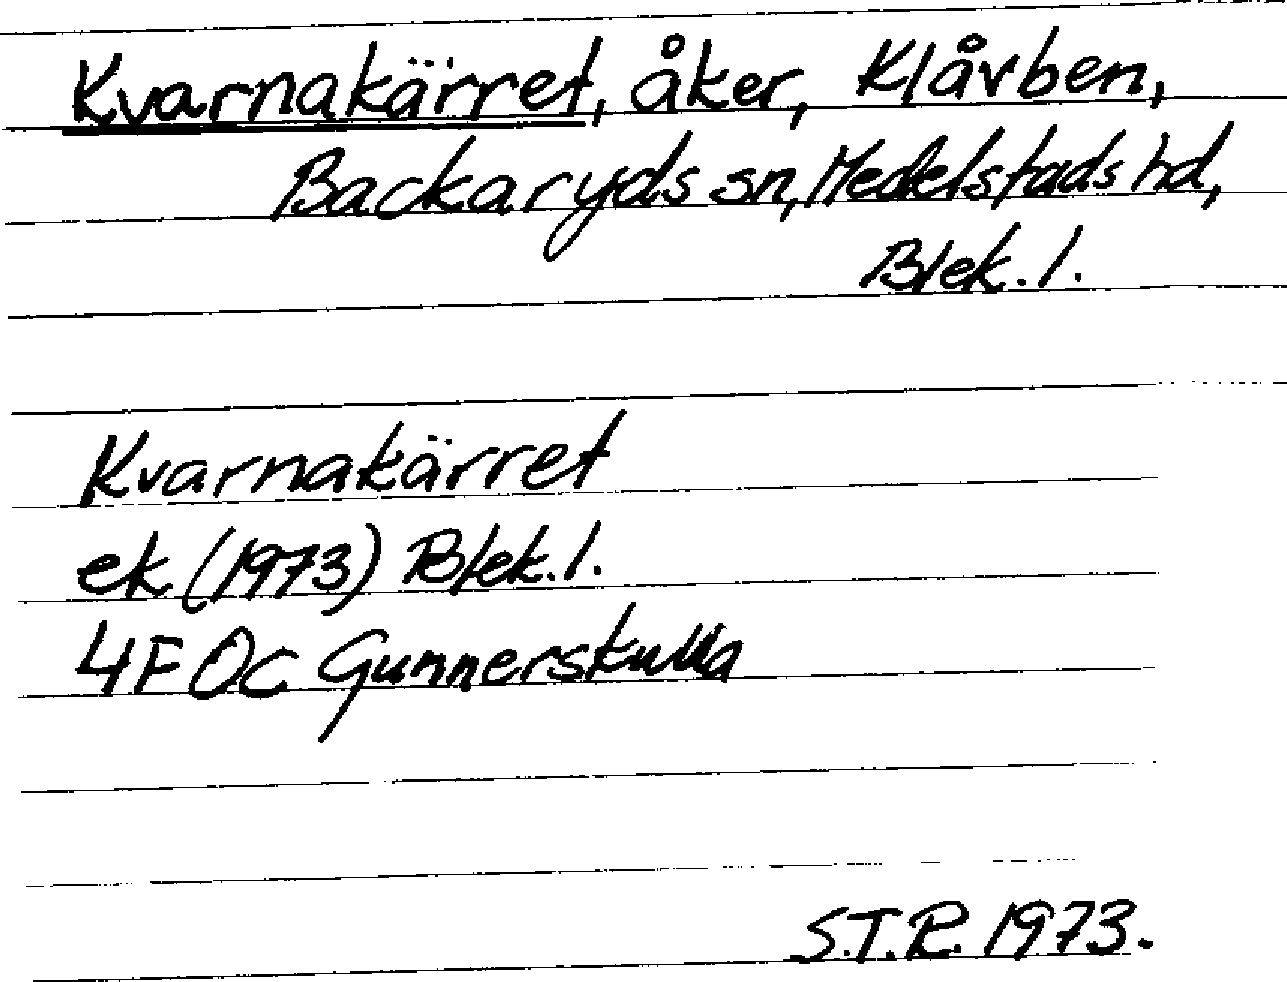 Kvarnakärret, åker, Klåvben,
Backaryds sn, Medelstads hd,
Blek. l.
Kvarnakärret
ek (1973) Blek. l.
4F Oc Gunnerskulla
S.T.R. 1973.